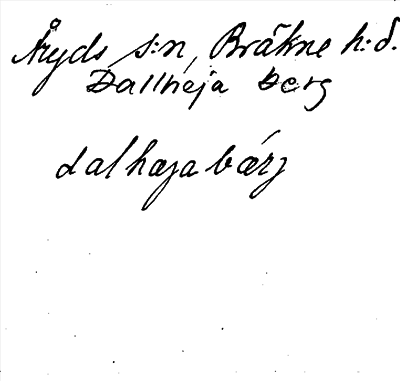 Åryds s:n, Bräkne h:d.
Dallheja berg
dalhæja bærj